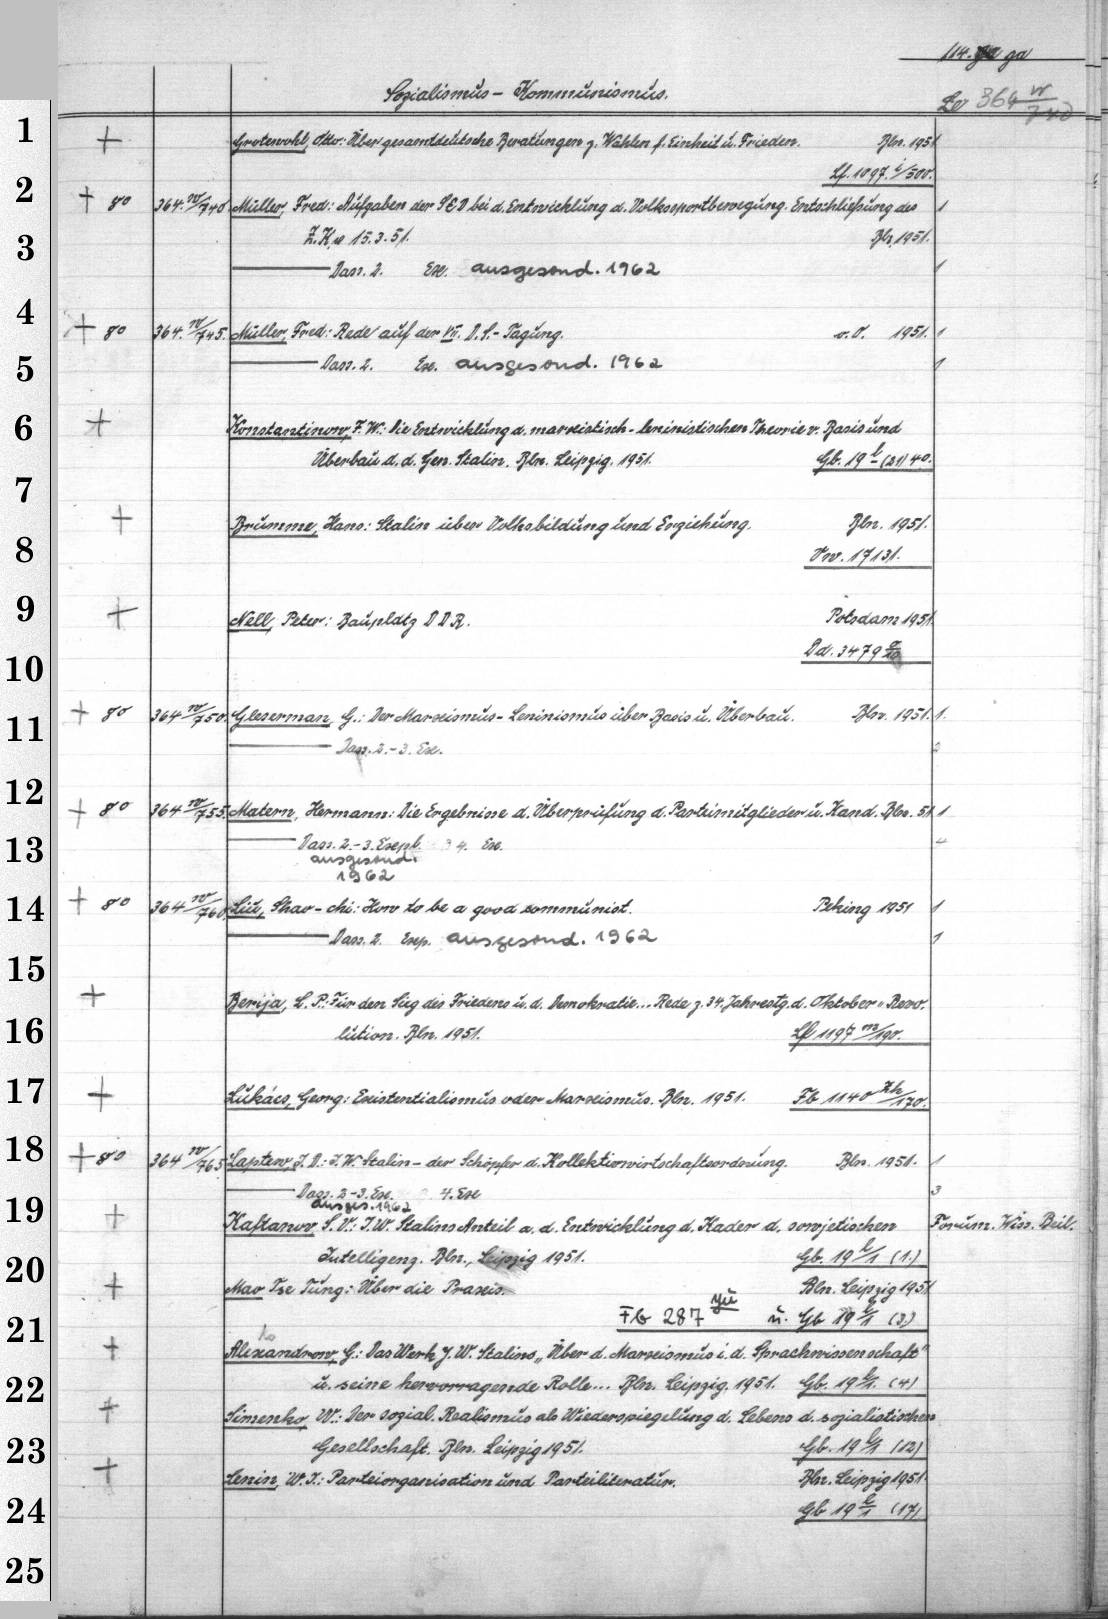 114. ga
Sozialismus – Kommunismus.
Lo 364 w/740
1
+ Grotewohl, Otto: Über gesamtdeutsche Beratungen z. Wahlen f. Einheit u. Frieden. Bln. 1951
Lf. 1097 i/500.
2
+ 80 364. w/740. Müller, Fred: Aufgaben der SED bei d. Entwicklung d. Volkssportbewegung. Entschließung des 1
3
Z.K. v. 15.3.51. Bln. 1951.
Dass. 2. Ex. ausgesond. 1962 1
4
+ 80 364. w/745. Müller, Fred: Rede auf der VII. D.S.-Tagung. o.O. 1951. 1
5
Dass. 2. Ex. ausgesond. 1962 1
6
+ Konstantinow, F.W.: Die Entwicklung d. marxistisch-leninistischen Theorie v. Basis und
Überbau d. d. Gen. Stalin. Bln. Leipzig. 1951. Gb. 19 l (21) 40.
7
+ Brumme, Hans: Stalin über Volksbildung und Erziehung. Bln. 1951.
8
Vw. 17131.
9
+ Nell, Peter: Bauplatz DDR. Potsdam 1951.
Dd. 3479
10
+ 80 364 w/750. Gleserman, G.: Der Marxismus-Leninismus über Basis u. Überbau. Bln. 1951. 1.
11
Dass. 2.-3. Ex. 2
12
+ 80 364 w/755. Matern, Hermann: Die Ergebnisse d. Überprüfung d. Parteimitglieder u. Kand. Bln. 51. 1
13
Dass. 2.-3. Exepl. 4. Ex.
ausgesond.
1962
14
+ 80 364 w/760 Liu, Shao-chi: How to be a good communist. Peking 1951 1
Dass. 2. Exp. ausgesond. 1962 1
15
+ Berija, L.P.: Für den Sieg des Friedens u. d. Demokratie... Rede z. 34. Jahrestg. d. Oktober-Revo-
16
lution. Bln. 1951. Lf 1197 m/190.
17
+ Lukács, Georg: Existentialismus oder Marxismus. Bln. 1951. Fb 1140 zh/170.
18
+ 80 364 w/765 Laptew, J.D.: J.W. Stalin – der Schöpfer d. Kollektivwirtschaftsordnung. Bln. 1951. 1
Dass. 2-3. Ex. 4. Ex 3
ausges. 1962
19
+ Kaftanow, S.V.: J.W. Stalins Anteil a. d. Entwicklung d. Kader d. sowjetischen Forum. Wiss. Beil.
Intelligenz. Bln., Leipzig 1951. Gb. 19 l/1 (1.)
20
+ Mao Tse Tung: Über die Praxis. Bln. Leipzig 1951
Fb 287 yu u. Gb 19 l/1 (3.)
21
+ Alexandrow, G.: Das Werk J.W. Stalins „Über d. Marxismus i. d. Sprachwissenschaft"
22
u. seine hervorragende Rolle... Bln. Leipzig. 1951. Gb. 19 l/1. (4)
+ Simenko, W.: Der sozial. Realismus als Wiederspiegelung d. Lebens d. sozialistischen
23
Gesellschaft. Bln. Leipzig 1951. Gb. 19 l/1 (12)
+ Lenin, W.I.: Parteiorganisation und Parteiliteratur. Bln. Leipzig 1951.
24
Gb 19 l/1 (17)
25